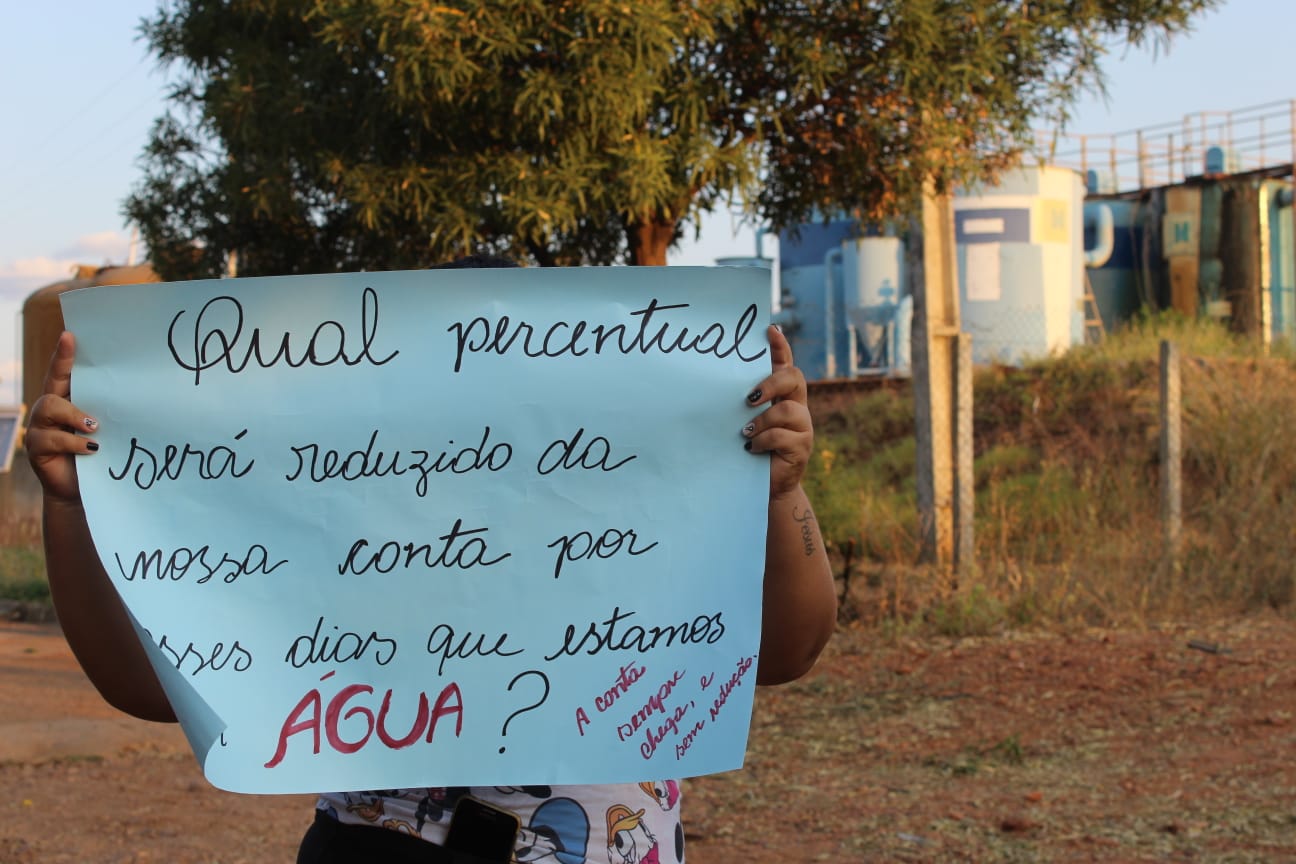 Qual percentual
será reduzido da
nossa conta por
esses dias que estamos
ÁGUA ?
A conta
sempre
chega, e
sem redução.
Jesus